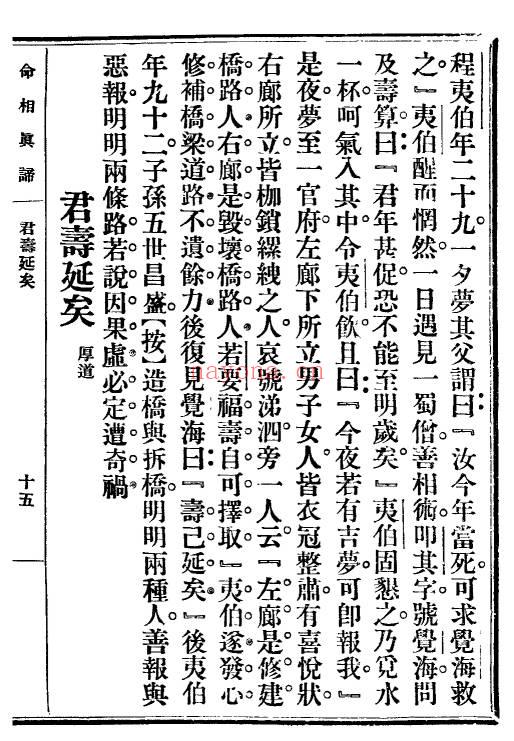 程夷伯年二十九。一夕夢其父謂曰：『汝今年當死。可求覺海救
之。』夷伯醒而惘然。一日遇見一蜀僧。善相術。叩其字號覺海。問
及壽算。曰：『君年甚促。恐不能至明歲矣。』夷伯固懇之。乃覓水
一杯。呵氣入其中。令夷伯飲。且曰：『今夜若有吉夢。可卽報我。』
是夜夢至一官府。左廊下所立男子女人。皆衣冠整肅。有喜悅狀。
右廊所立。皆枷鎖縲絏之人。哀號涕泗。旁一人云。『左廊是修建
橋路人。右廊是毀壞橋路人。若要福壽。自可擇取。』夷伯遂發心
修補橋梁道路。不遺餘力。後復見覺海。曰：『壽已延矣。』後夷伯
年九十二。子孫五世昌盛。【按】造橋與拆橋。明明兩種人。善報與
惡報。明明兩條路。若說因果虛。必定遭奇禍。
君壽延矣 厚道
命相眞諦 君壽延矣 十五
nayona.cn